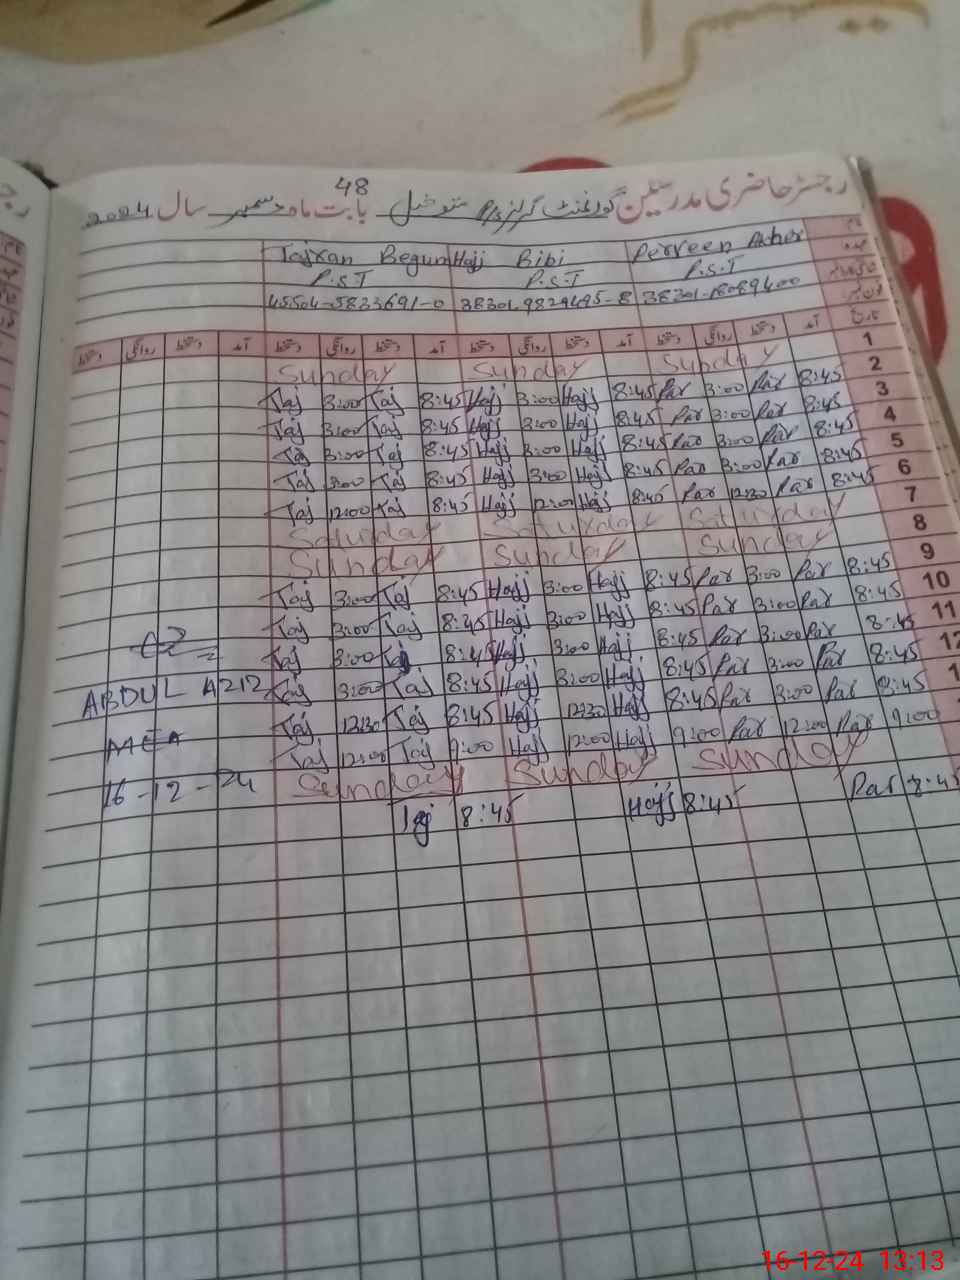 48
رجسٹر حاضری مدرسین گورنمنٹ گرلز پ/س بابت ماہ دسمبر سال 2024
Tajran Begum Hajj Bibi Perveen Akhter
P.S.T P.S.T P.S.T
45504-5833691-0 38301-9829495-8
تاریخ
آمد دستخط روانگی دستخط آمد دستخط روانگی دستخط آمد دستخط روانگی دستخط آمد دستخط روانگی دستخط
1
Sunday Sunday Sunday
2
Taj 3:00 Taj 8:45 Hajj 3:00 Hajj 8:45 Par 3:00 Par 8:45
3
Taj 3:00 Taj 8:45 Hajj 3:00 Hajj 8:45 Par 3:00 Par 8:45
4
Taj 3:00 Taj 8:45 Hajj 3:00 Hajj 8:45 Par 3:00 Par 8:45
5
Taj 3:00 Taj 8:45 Hajj 3:00 Hajj 8:45 Par 3:00 Par 8:45
6
Taj 12:00 Taj 8:45 Hajj 12:00 Hajj 8:45 Par 12:30 Par 8:45
7
Saturday Saturday Saturday
8
Sunday Sunday Sunday
9
Taj 3:00 Taj 8:45 Hajj 3:00 Hajj 8:45 Par 3:00 Par 8:45
10
Taj 3:00 Taj 8:45 Hajj 3:00 Hajj 8:45 Par 3:00 Par 8:45
11
Taj 3:00 Taj 8:45 Hajj 3:00 Hajj 8:45 Par 3:00 Par 8:45
12
ABDUL AZIZ Taj 3:00 Taj 8:45 Hajj 3:00 Hajj 8:45 Par 3:00 Par 8:45
Taj 12:30 Taj 8:45 Hajj 12:30 Hajj 8:45 Par 3:00 Par 8:45
MEA Taj 12:00 Taj 9:00 Hajj 12:00 Hajj 9:00 Par 12:00 Par 9:00
16-12-24 Sunday Sunday Sunday
Taj 8:45 Hajj 8:45 Par 8:45
16-12-24 13:13